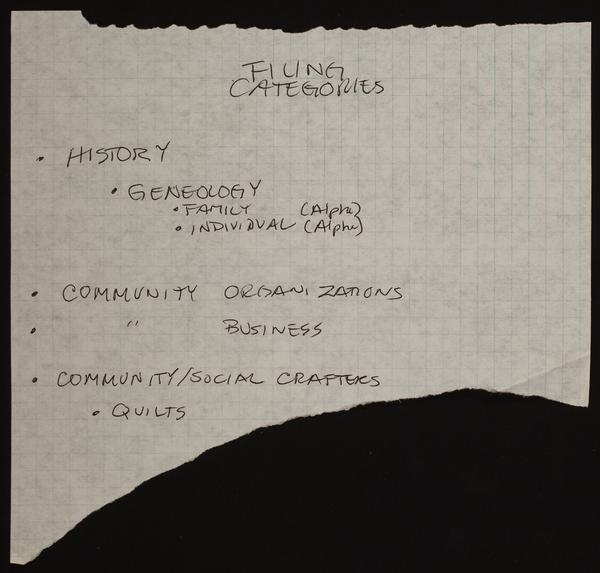 FILING
CATEGORIES
• HISTORY
• GENEOLOGY
• FAMILY (Alpha)
• INDIVIDUAL (Alpha)
• COMMUNITY ORGANIZATIONS
• " BUSINESS
• COMMUNITY/SOCIAL CRAFTERS
• QUILTS